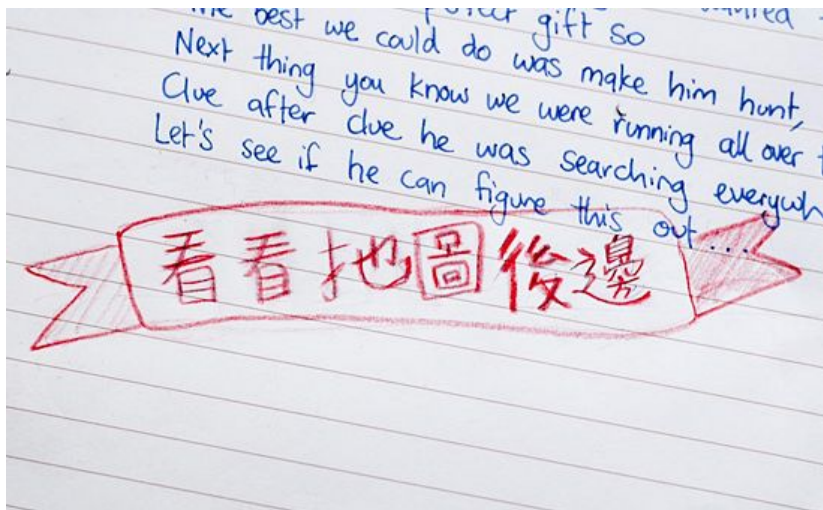 best we could do was make him hunt,
gift so
Next thing you know we were running all over
Clue after clue he was searching
Let's see if he can figure this out....
看看地圖後邊